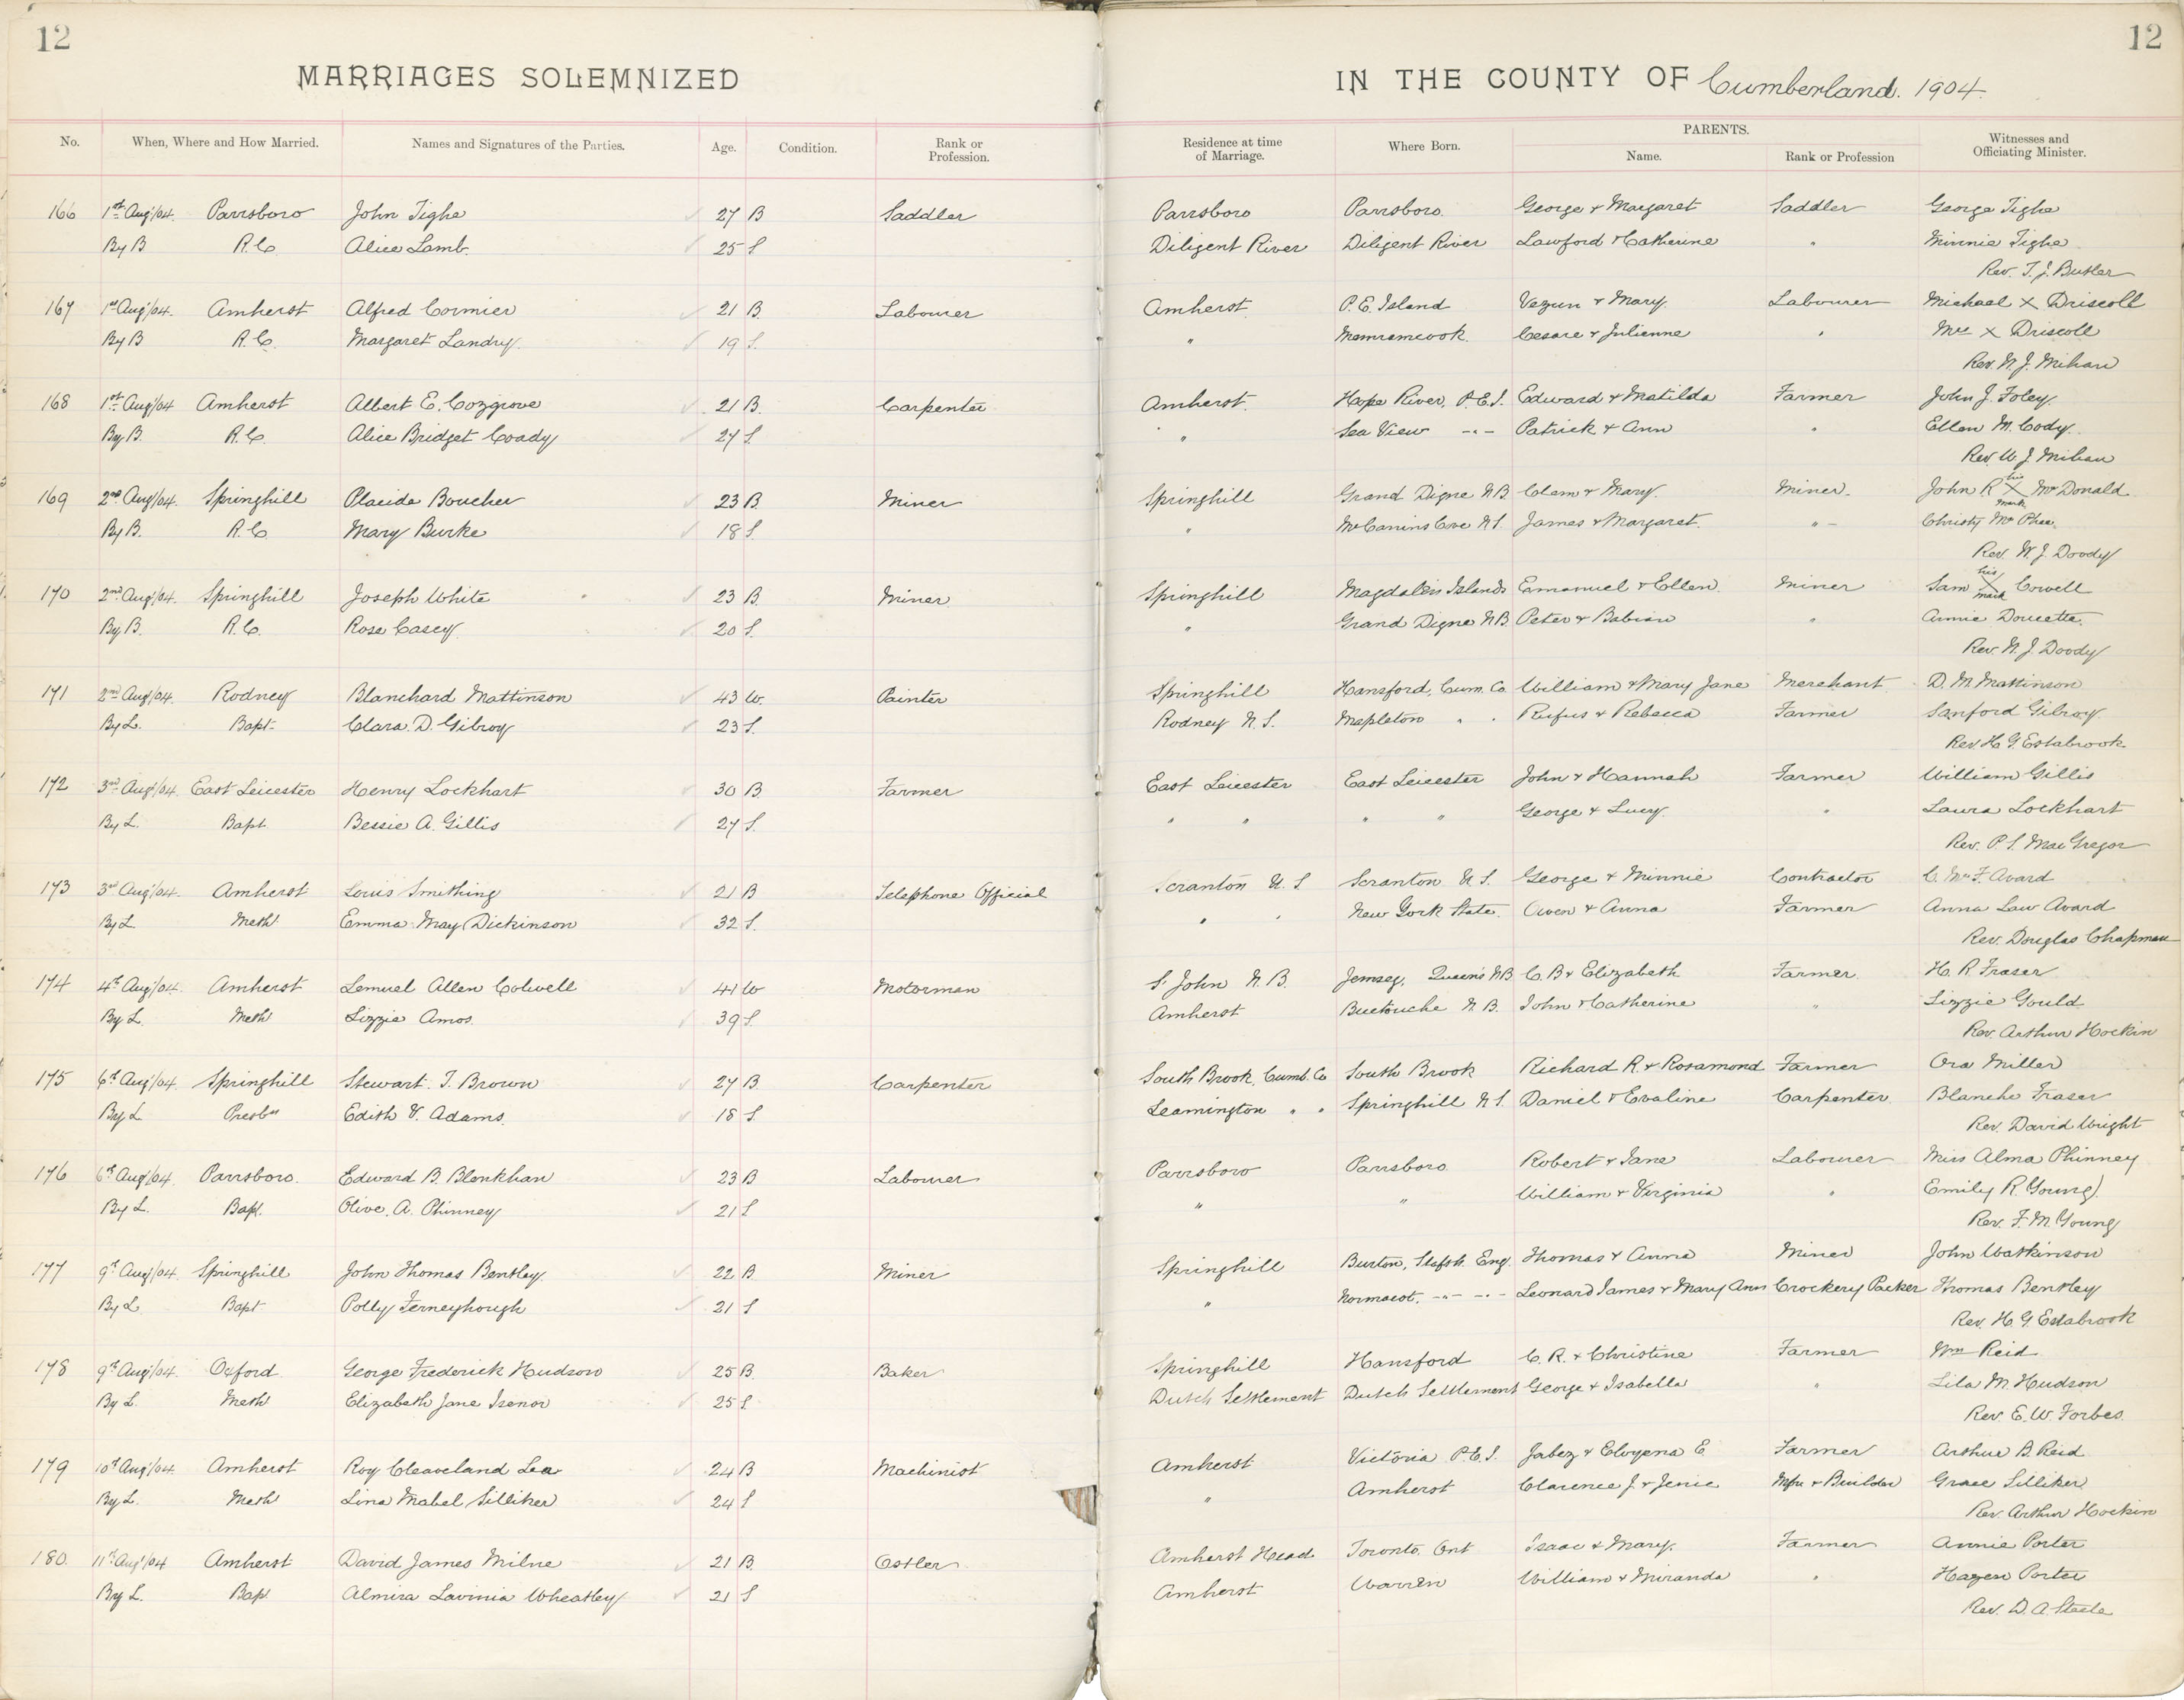 12 12
MARRIAGES SOLEMNIZED IN THE COUNTY OF Cumberland. 1904.
No. When, Where and How Married. Names and Signatures of the Parties. Age. Condition. Rank or Profession. Residence at time of Marriage. Where Born. PARENTS. Name. Rank or Profession Witnesses and Officiating Minister.
166 1st Aug/04. Parrsboro John Tighe 27 B Saddler Parrsboro Parrsboro. George & Margaret Saddler George Tighe
By B R.C. Alice Lamb. 25 S Diligent River Diligent River Lawford & Catherine " Minnie Tighe
Rev. T. J. Butler
167 1st Aug/04. Amherst Alfred Cormier 21 B. Labourer Amherst. P. E. Island & Mary Labourer Michael X Driscoll
By B R.C. Margaret Landry. 19 S. " Memramcook. Cesare & Julienne " Mrs X Driscoll
Rev. W. J. Mihan
168 1st Aug/04 Amherst Albert E. Cozgrove 21 B. Carpenter Amherst. Hope River, P.E.I. Edward & Matilda Farmer John J. Foley.
By B. R.C. Alice Bridget Coady 27 S. " Sea View -"- Patrick & Ann " Ellen M. Cody.
Rev W. J. Mihan
169 2nd Aug/04. Springhill Placide Boucher 23 B. Miner Springhill Grand Digne N.B. Clem & Mary. Miner. John R his X mark McDonald
By B. R.C. Mary Burke 18 S. " N.S. James & Margaret. " Christy McPhee.
Rev. W. J. Doody
170 2nd Aug/04. Springhill Joseph White 23 B. Miner Springhill Magdalen Islands Emanuel & Ellen. Miner Sam his X mark Cowell
By B. R.C. Rose Casey. 20 S. " Grand Digne N.B. Peter & Babian " Annie Doucette.
Rev. W. J. Doody
171 2nd Aug/04. Rodney Blanchard Mattinson 43 W. Painter Springhill Hansford, Cum. Co. William & Mary Jane Merchant D. M. Mattinson
By L. Bapt. Clara D. Gilroy 23 S. Rodney N.S. Mapleton " " Rufus & Rebecca Farmer Sanford Gilroy.
Rev H. G. Estabrook
172 3rd Aug/04. East Leicester Henry Lockhart 30 B. Farmer East Leicester East Leicester John & Hannah Farmer William Gillis
By L. Bapt. Bessie A. Gillis 27 S. " " " " George & Lucy. " Laura Lockhart
Rev. P. S. MacGregor
173 3rd Aug/04. Amherst Louis Smithing 21 B Telephone Official Scranton U.S. Scranton U.S. George & Minnie Contractor C. McF. Avard
By L Meth Emma May Dickinson 32 S. " " New York State. Owen & Anna Farmer Anna Law Avard
Rev. Douglas Chapman
174 4th Aug/04. Amherst Lemuel Allen Colwell 41 W Motorman St John N.B. Jemseg, Queen's N.B. C. B. & Elizabeth Farmer. H. R. Fraser
By L. Meth Lizzie Amos 39 S. Amherst Buctouche N.B. John & Catherine " Lizzie Gould
Rev. Arthur Hockin
175 6th Aug/04. Springhill Stewart T. Brown 27 B. Carpenter South Brook, Cumb. Co South Brook Richard R. & Rosamond Farmer Ora Miller
By L Presbn Edith V. Adams. 18 S. Leamington " " Springhill N.S. Daniel & Evaline Carpenter Blanche Fraser
Rev. David Wright
176 6th Aug/04. Parrsboro. Edward B. Blenkhan 23 B Labourer Parrsboro Parrsboro Robert & Jane Labourer Miss Alma Phinney
By L. Bapt. Olive. A. Phinney 21 S " " William & Virginia " Emily R. Young
Rev. F. M. Young
177 9th Aug/04. Springhill John Thomas Bentley 22 B. Miner Springhill Burton, Stafsh. Eng. Thomas & Anna Miner John Watkinson
By L Bapt Polly Ferneyhough 21 S " Normacot. -"- -"- Leonard James & Mary Ann Crockery Packer Thomas Bentley
Rev. H. G. Estabrook
178 9th Aug/04. Oxford George Frederick Hudson 25 B. Baker Springhill Hansford C. R. & Christine Farmer Wm Reid
By L. Meth Elizabeth Jane Isenor 25 S. Dutch Settlement Dutch Settlement George & Isabella " Lila M. Hudson
Rev. E. W. Forbes.
179 10th Aug/04. Amherst Roy Cleaveland Lea 24 B Machinist Amherst Victoria P.E.I. Jabez & E. Farmer Arthur B. Reid
By L. Meth Lina Mabel Silliker 24 S " Amherst Clarence J. & Jenie Mfr & Builder Grace Silliker
Rev. Arthur Hockin
180. 11th Aug/04 Amherst David James Milne 21 B. Ostler Amherst Head Toronto, Ont Isaac & Mary. Farmer Annie Porter
By L. Bap. Almira Lavinia Wheatley 21 S Amherst Warren William & Miranda " Hazen Porter
Rev. D. A. Steele